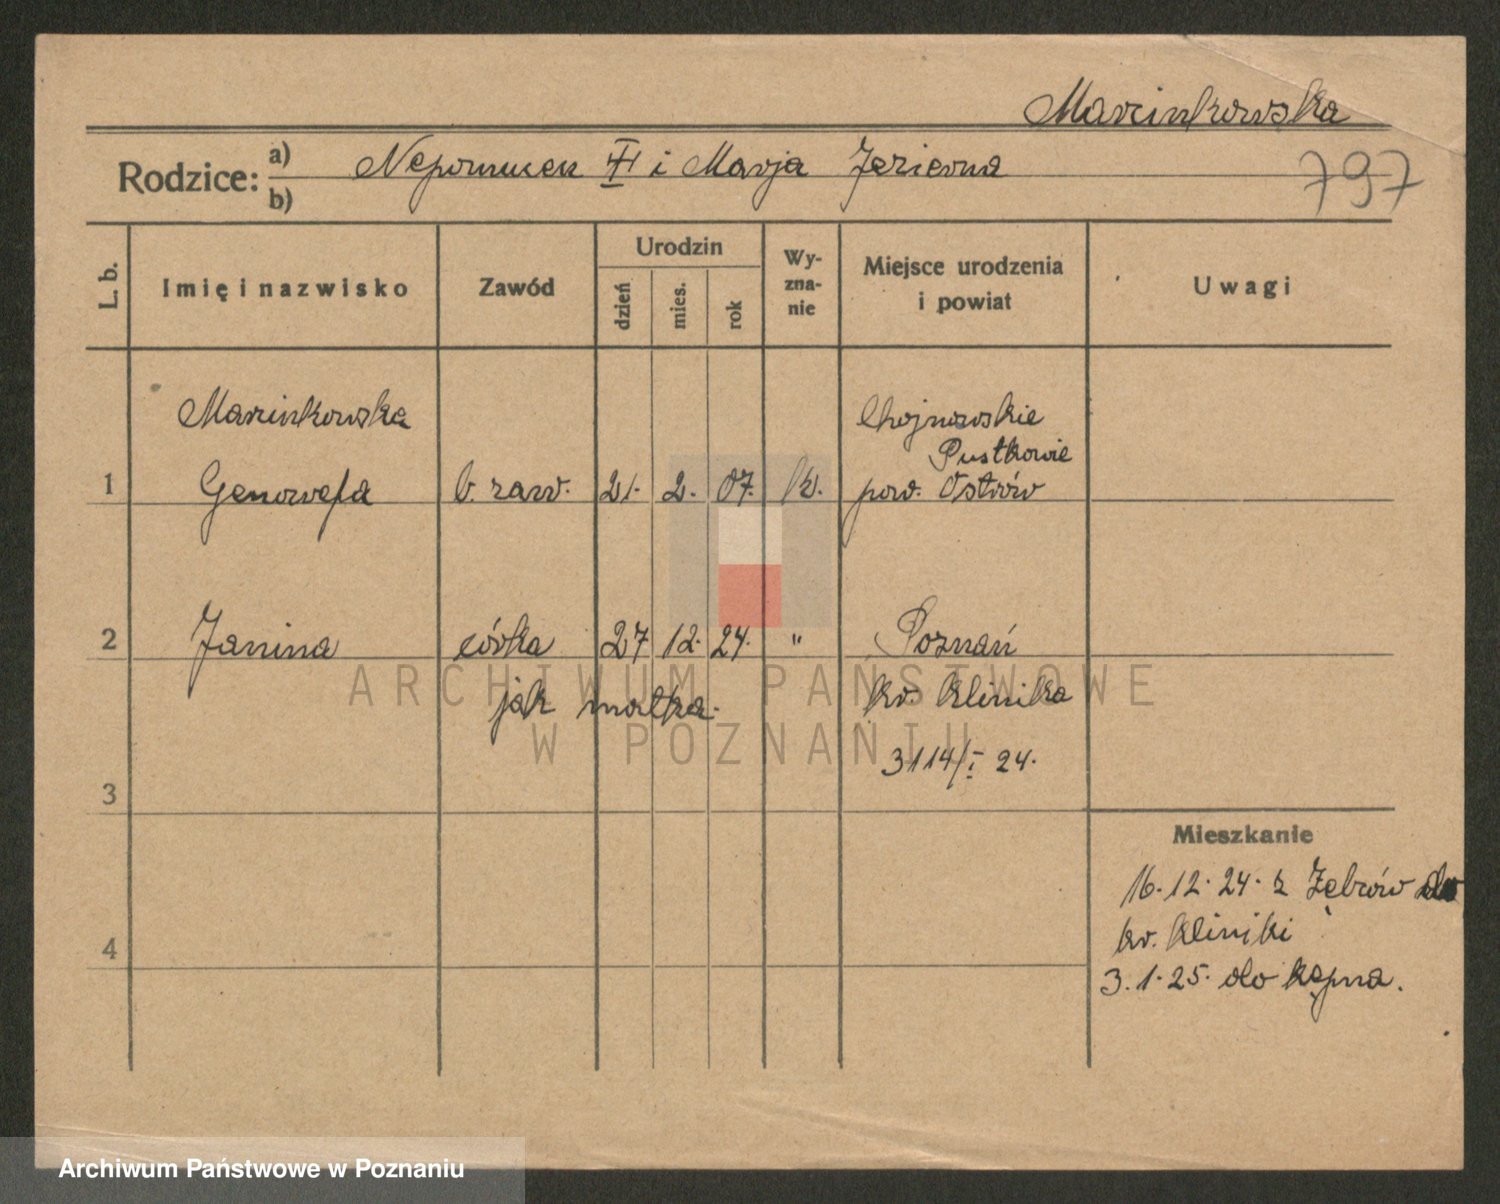 Marcinkowska
797
Rodzice: a) Nepomucen i Marja Jezierna
b)
L. b.
Imię i nazwisko
Zawód
Urodzin
dzień
mies.
rok
Wy-
zna-
nie
Miejsce urodzenia
i powiat
Uwagi
Marcinkowska
1 Genowefa b. zaw. 21. 2. 07. k. Chojnowskie
Pustkowie
pow. Ostrów
2 Janina córka 27 12. 24. " Poznań
jak matka. kr. klinika
3114/I 24.
3
Mieszkanie
16. 12. 24. z Zębców do
kr. kliniki
4
3. 1. 25. do Kępna.
ARCHIWUM PAŃSTWOWE
W POZNANIU
Archiwum Państwowe w Poznaniu